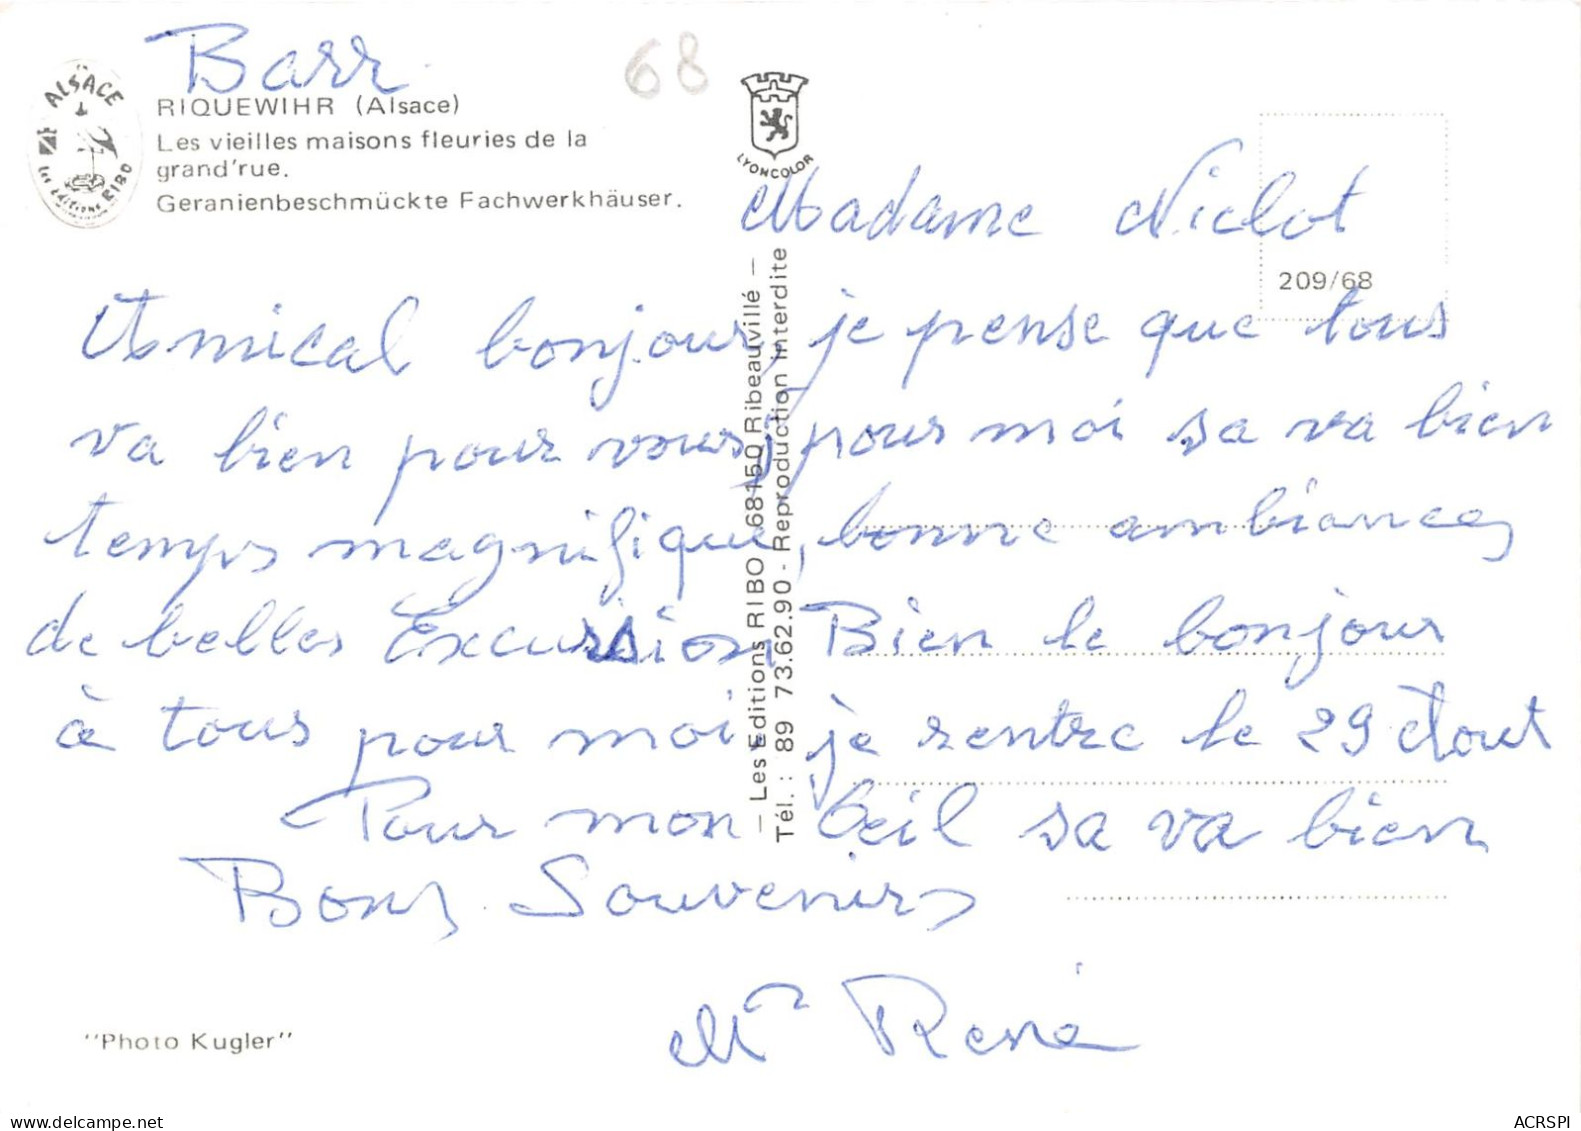 Barr
68
RIQUEWIHR (Alsace)
Les vieilles maisons fleuries de la
grand'rue.
Geranienbeschmückte Fachwerkhäuser.
ALSACE
Les Editions RIBO
LYONCOLOR
209/68
— Les Editions RIBO 68150 Ribeauvillé —
Tél. : 89 73.62.90 - Reproduction interdite
Madame Niclot
Amical bonjour, je pense que tous
va bien pour vous, pour moi sa va bien
temps magnifique, bonne ambiances
de belles Excursion, Bien le bonjour
à tous pour moi je rentre le 29 Aout
Pour mon Oeil sa va bien
Bons Souvenirs
Mr René
"Photo Kugler"
www.delcampe.net
ACRSPI